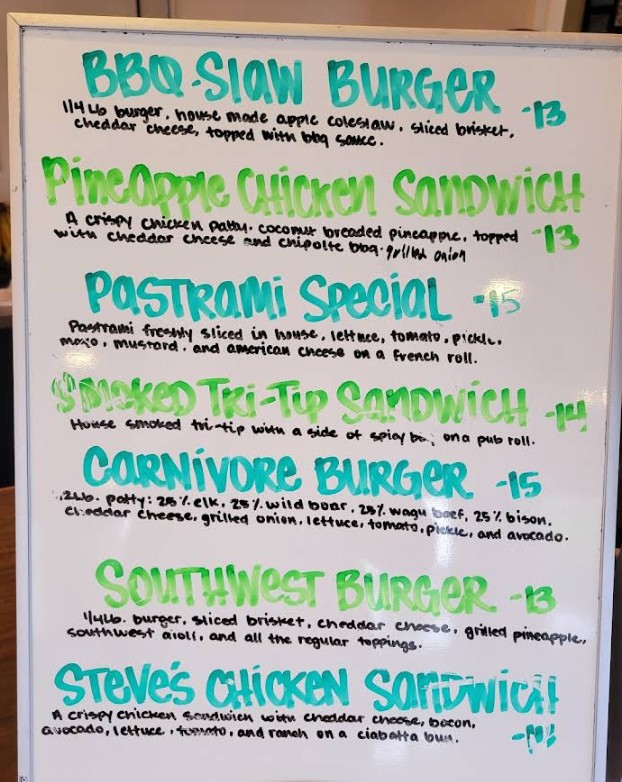 BBQ Slaw Burger -13
1/4 Lb burger, house made apple coleslaw, sliced brisket,
cheddar cheese, topped with bbq sauce.
Pineapple Chicken Sandwich
A crispy chicken patty. coconut breaded pineapple, topped
with cheddar cheese and chipolte bbq. grilled onion -13
Pastrami Special -15
Pastrami freshly sliced in house, lettuce, tomato, pickle,
mayo, mustard, and american cheese on a french roll.
Smoked Tri-Tip Sandwich -14
House smoked tri-tip with a side of spicy on a pub roll.
Carnivore Burger -15
patty: 25% elk, 25% wild boar, 25% wagu beef, 25% bison.
cheddar cheese, grilled onion, lettuce, tomato, pickle, and avocado.
Southwest Burger -13
1/4 Lb. burger, sliced brisket, cheddar cheese, grilled pineapple,
southwest aioli, and all the regular toppings.
Steve's Chicken Sandwich
A crispy chicken sandwich with cheddar cheese, bacon,
avocado, lettuce, tomato, and ranch on a ciabatta bun.